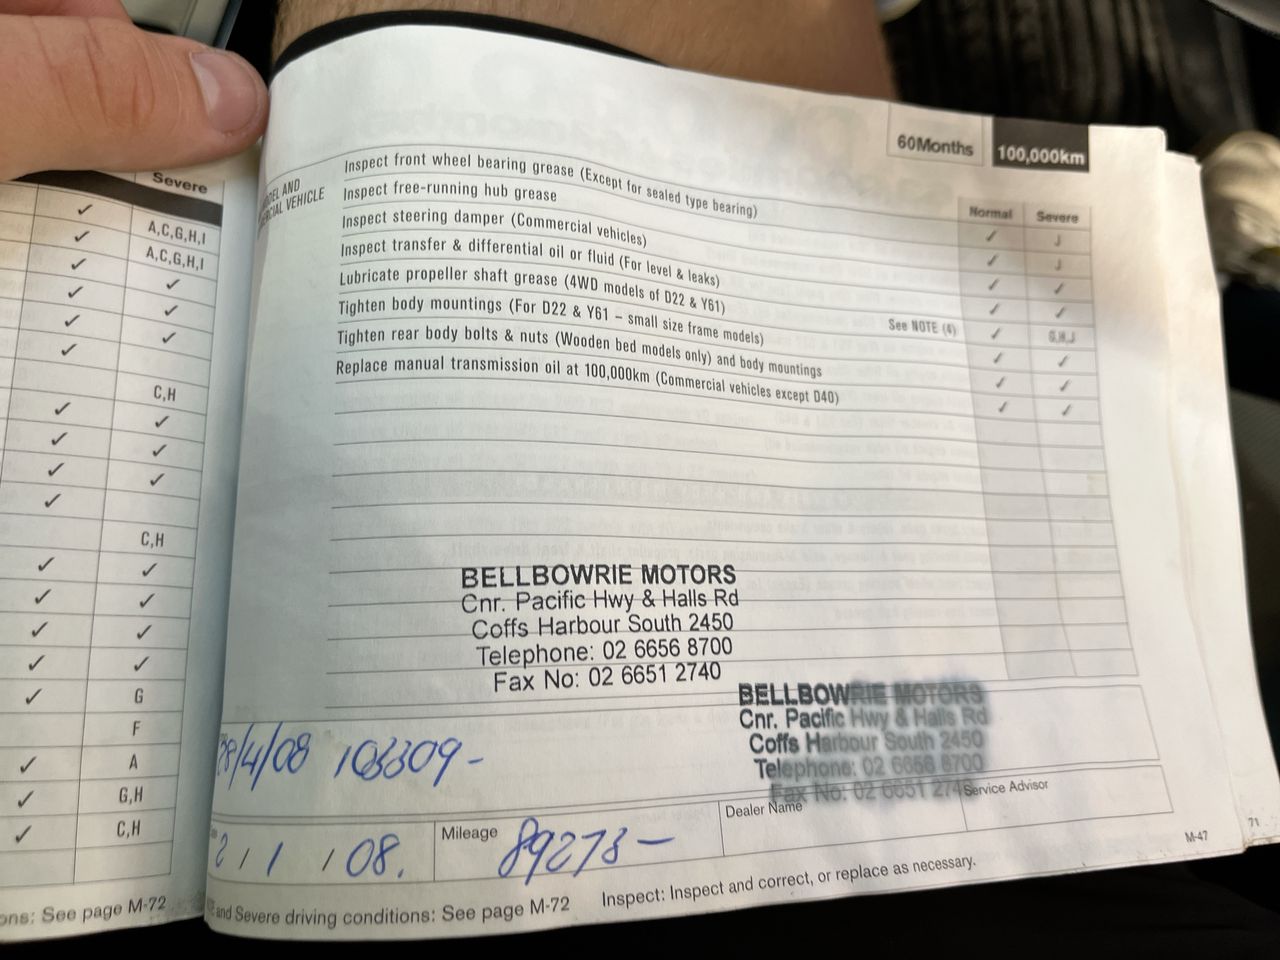 Severe
✓ A,C,G,H,I
✓ A,C,G,H,I
✓ ✓
✓
✓ ✓
✓
C,H
✓ ✓
✓ ✓
✓ ✓
✓
C,H
✓ ✓
✓ ✓
✓ ✓
✓ ✓
✓ G
F
✓ A
✓ G,H
✓ C,H
See page M-72
60Months 100,000km
Normal Severe
AND
VEHICLE
Inspect front wheel bearing grease (Except for sealed type bearing) ✓ J
Inspect free-running hub grease ✓ J
Inspect steering damper (Commercial vehicles) ✓ ✓
Inspect transfer & differential oil or fluid (For level & leaks) ✓ ✓
Lubricate propeller shaft grease (4WD models of D22 & Y61) See NOTE (4) ✓ G,H,J
Tighten body mountings (For D22 & Y61 – small size frame models) ✓ ✓
Tighten rear body bolts & nuts (Wooden bed models only) and body mountings ✓ ✓
Replace manual transmission oil at 100,000km (Commercial vehicles except D40) ✓ ✓
BELLBOWRIE MOTORS
Cnr. Pacific Hwy & Halls Rd
Coffs Harbour South 2450
Telephone: 02 6656 8700
Fax No: 02 6651 2740
BELLBOWRIE MOTORS
Cnr. Pacific Hwy & Halls Rd
Coffs Harbour South 2450
Telephone: 02 6656 8700
Fax No: 02 6651 2740
28/4/08 103309-
2/1/08. Mileage 89273- Dealer Name Service Advisor
and Severe driving conditions: See page M-72 Inspect: Inspect and correct, or replace as necessary.
M-47
71